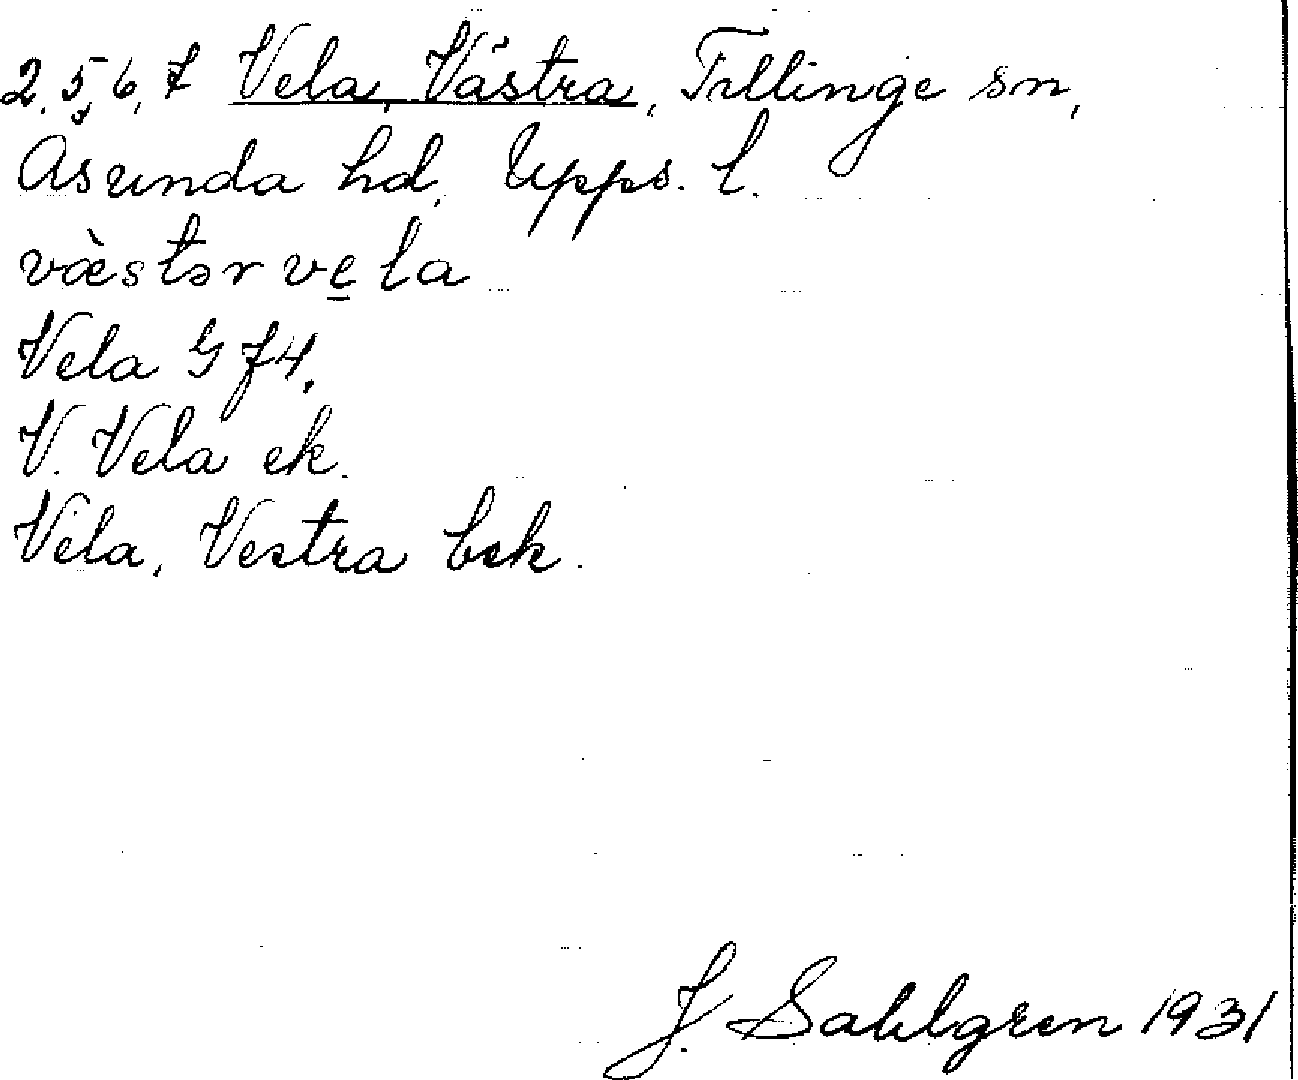 2, 5, 6, 7 Vela, Västra, Tillinge sn,
Åsunda hd, Upps. l.
væ̀stər ve̲la
Vela G f 4,
V. Vela ek.
Vela, Vestra bek.
J. Sahlgren 1931